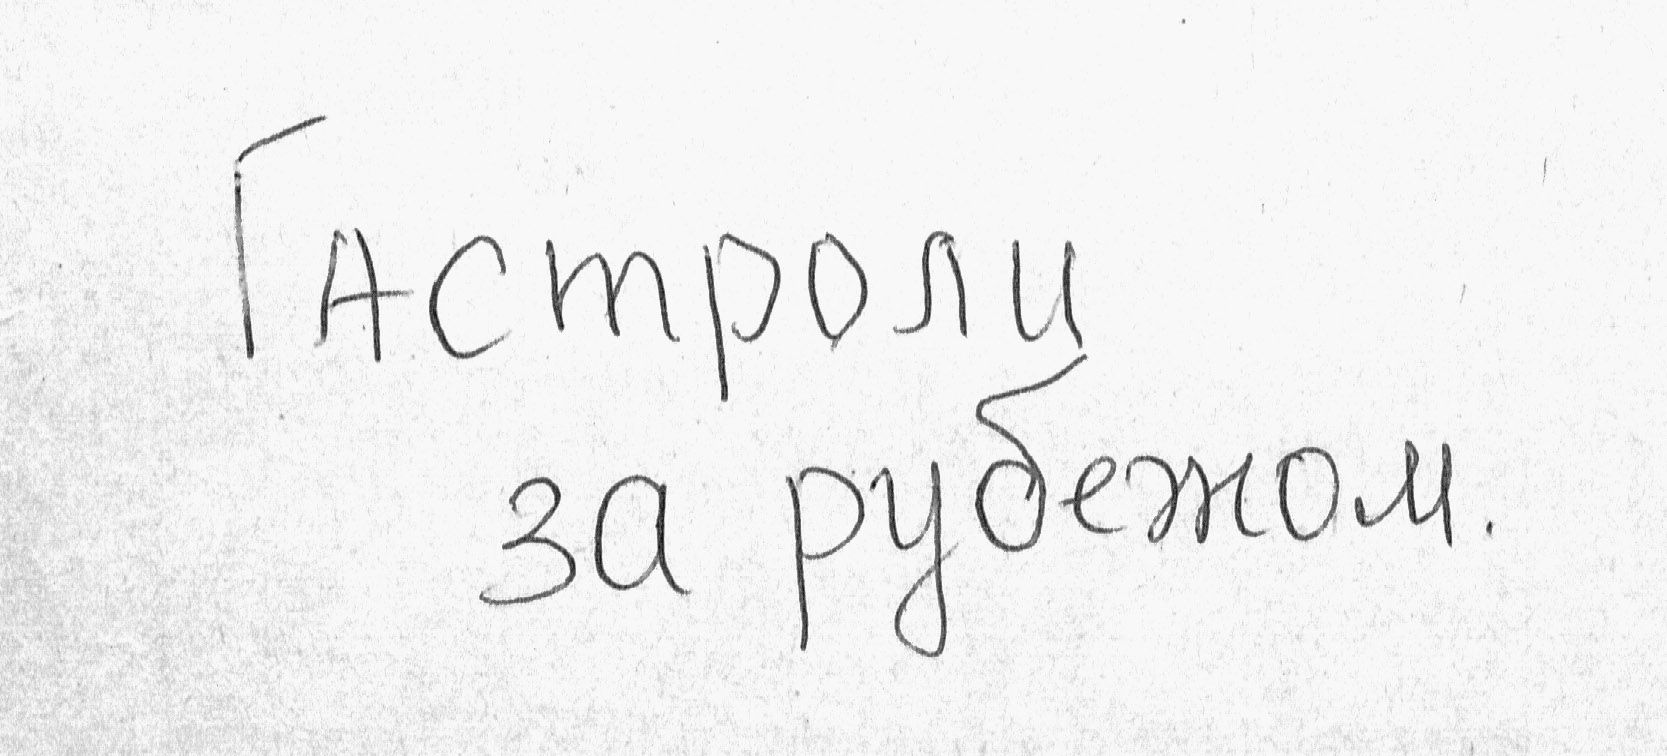 Гастроли
за рубежом.